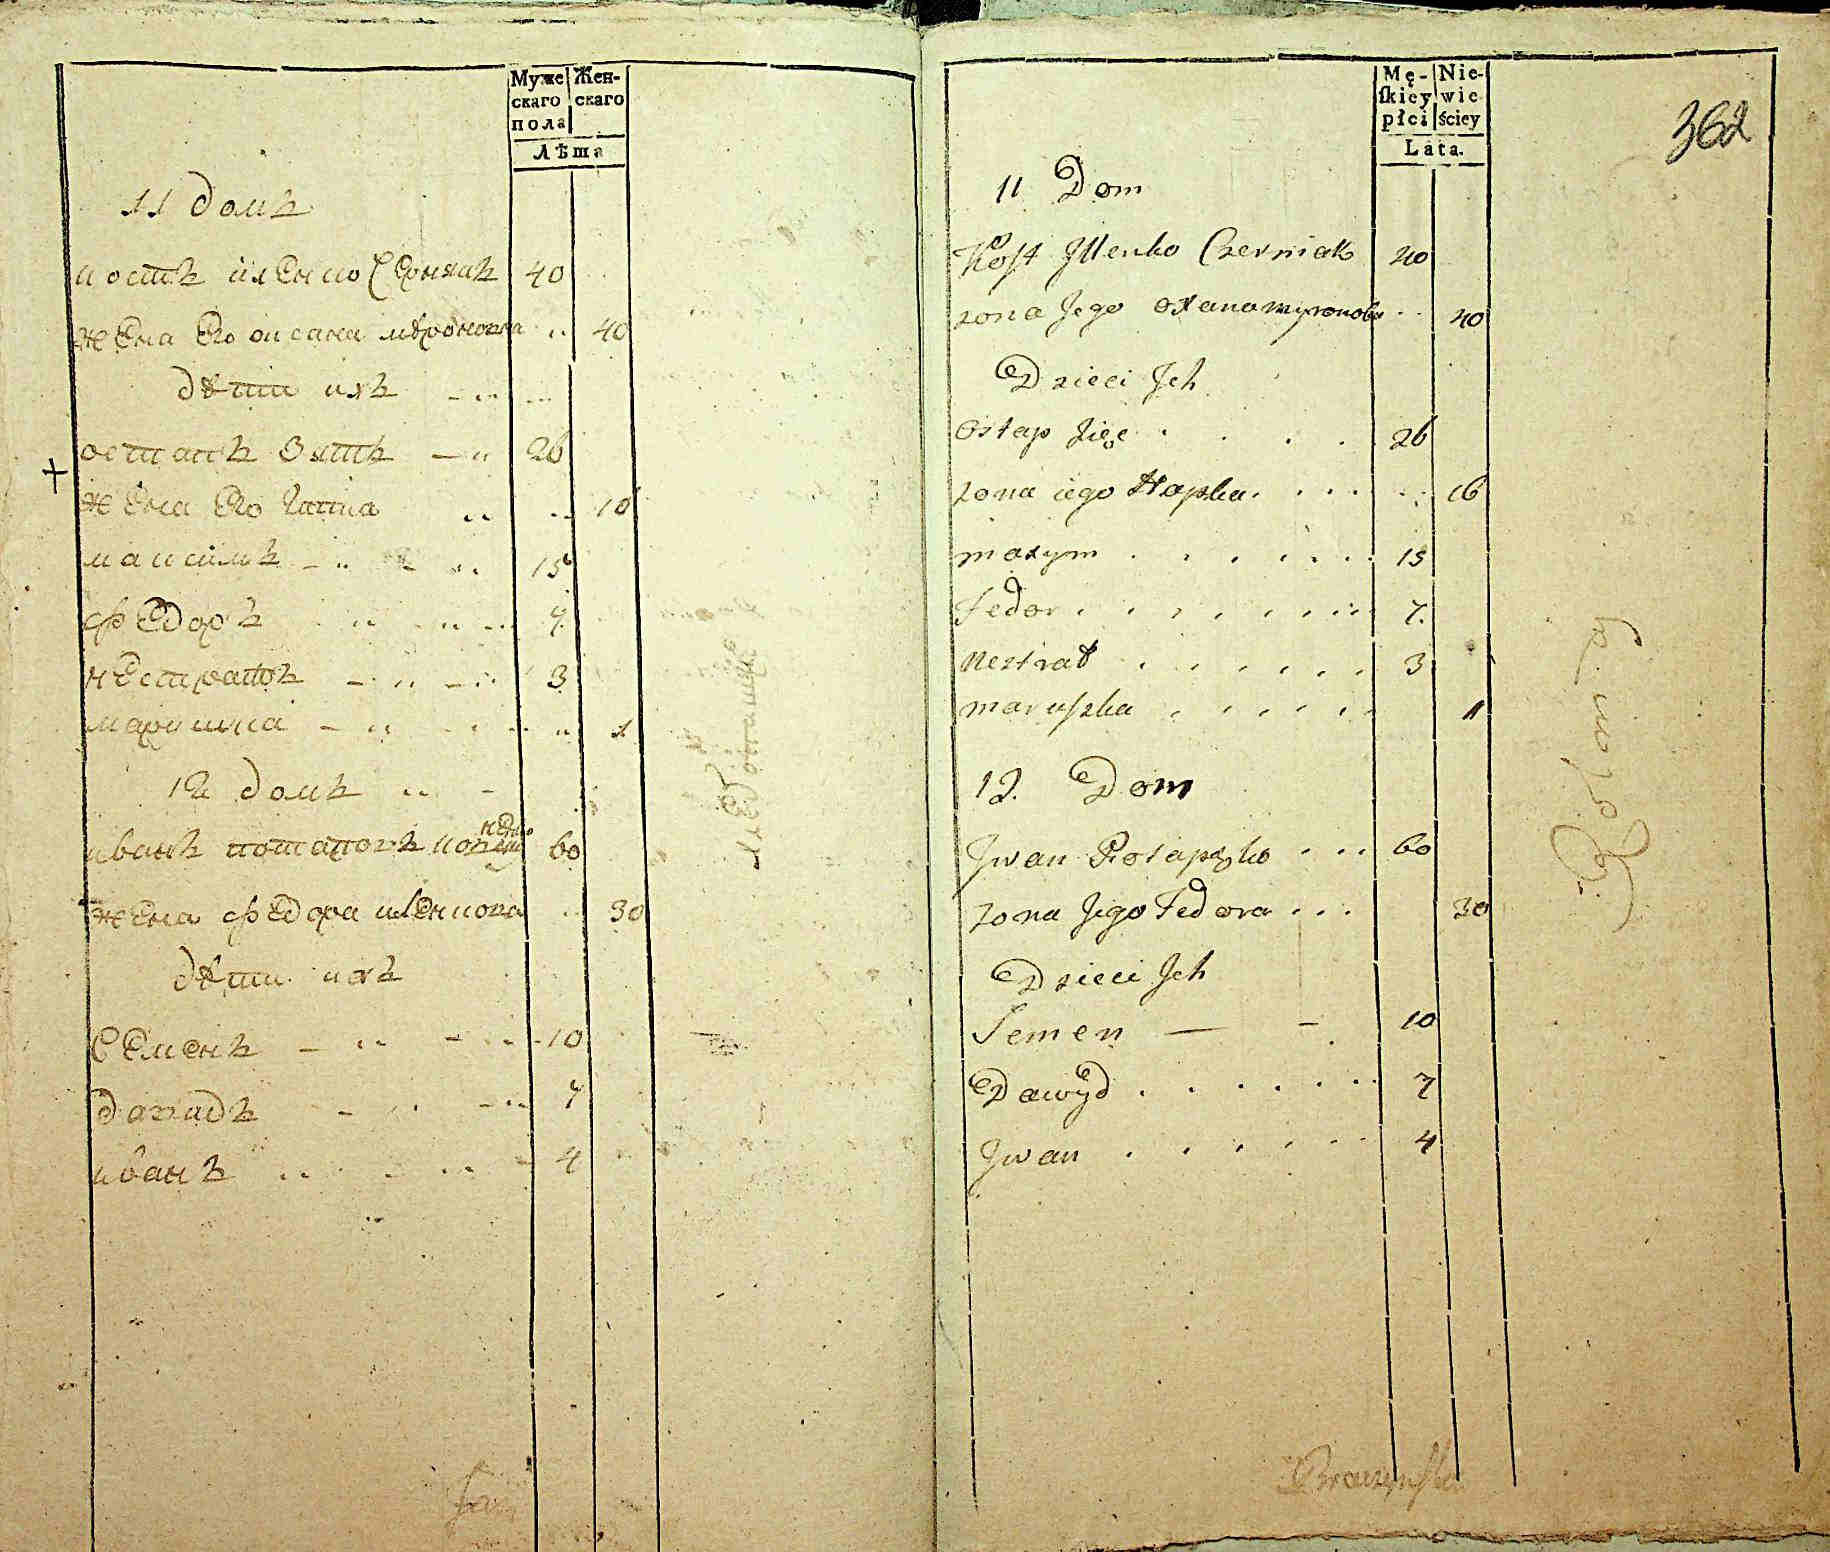 Муже Жен-
скаго скаго
пола
Лѣта
11 домъ
костъ иленко Чернякъ 40
жена его оксана мѣроновна 40
дѣти ихъ
остапъ Зятъ 26
жена его гапка 16
максимъ 15
федоръ 7
нестратъ 3
марушка 1
12 домъ
иванъ 60
жена федора иленкова 30
дѣти ихъ
Семенъ 10
давидъ 7
иванъ 4
362
Mę- Nie-
ſkiey wie
płci ściey
Lata.
11 Dom
Koſt Jllenko Czerniak 40
zona Jego oxana myronowa 40
Dzieci Jch
Ostap Zięc 26
zona iego Hapka 16
maxym 15
Fedor 7.
Nestrat 3
maruſzka 1
12. Dom
Jwan 60
zona Jego Fedora 30
Dzieci Jch
Semen 10
Dawyd 7
Jwan 4